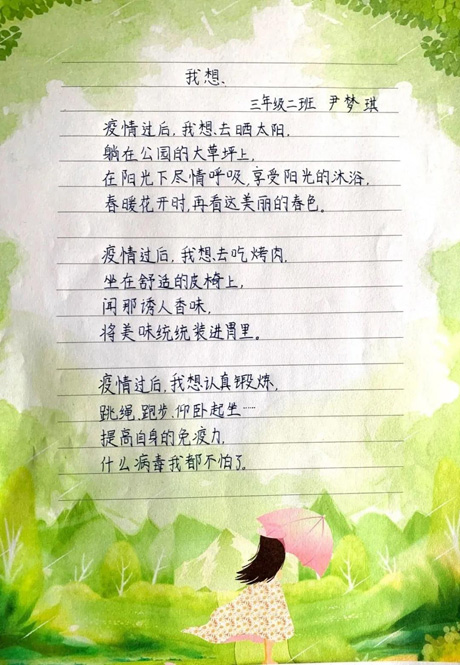 我想、
三年级二班 尹梦琪
疫情过后，我想、去晒太阳，
躺在公园的大草坪上，
在阳光下尽情呼吸，享受阳光的沐浴，
春暖花开时，再看这美丽的春色。
疫情过后，我想、去吃烤肉，
坐在舒适的皮椅上，
闻那诱人香味，
将美味统统装进胃里。
疫情过后，我想认真锻炼，
跳绳、跑步、仰卧起坐……
提高自身的免疫力，
什么病毒我都不怕了。